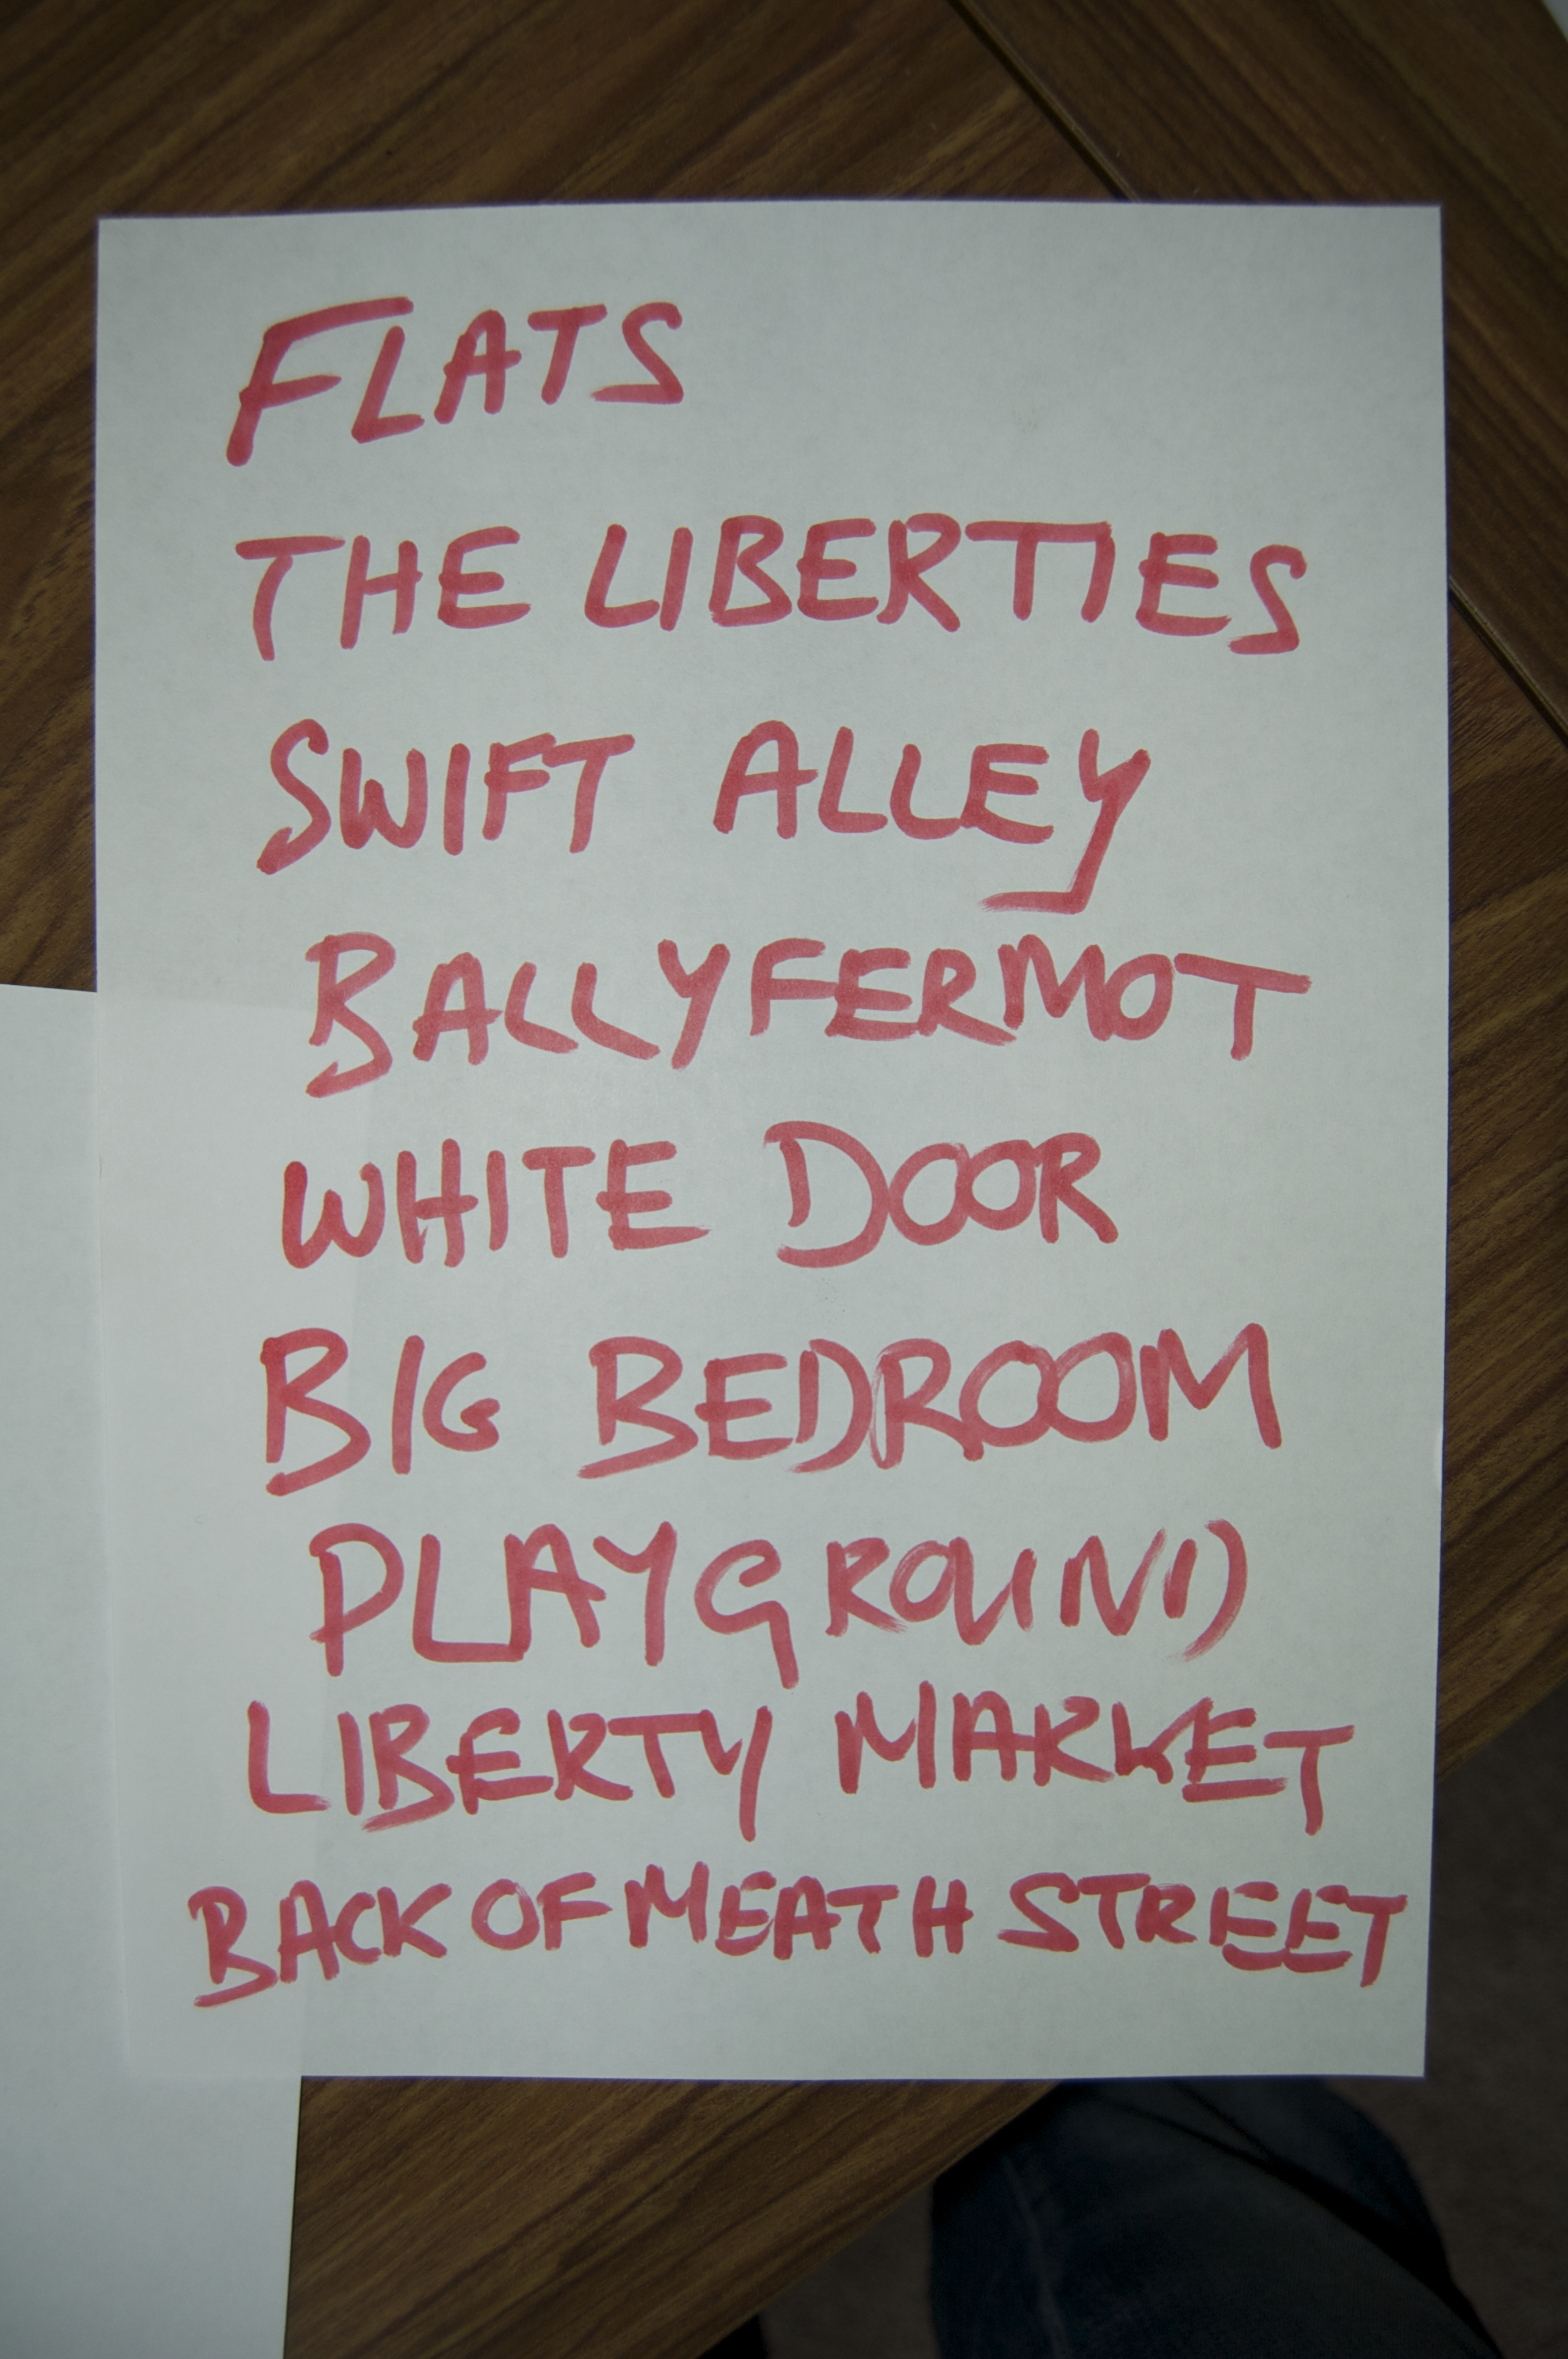 FLATS
THE LIBERTIES
SWIFT ALLEY
BALLYFERMOT
WHITE DOOR
BIG BEDROOM
PLAYGROUND
LIBERTY MARKET
BACK OF MEATH STREET